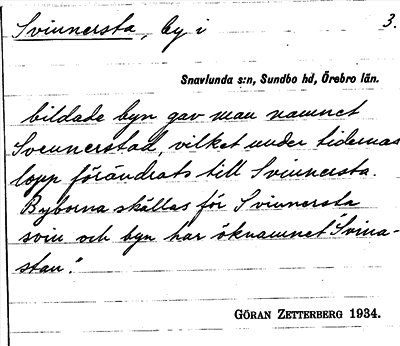 Svinnersta, by i 3.
Snavlunda s:n, Sundbo hd, Örebro län.
bildade byn gav man namnet
Svennerstad, vilket under tidernas
lopp förändrats till Svinnersta.
Byborna skällas för Svinnersta
svin och byn har öknamnet "Svina-
stan".
GÖRAN ZETTERBERG 1934.